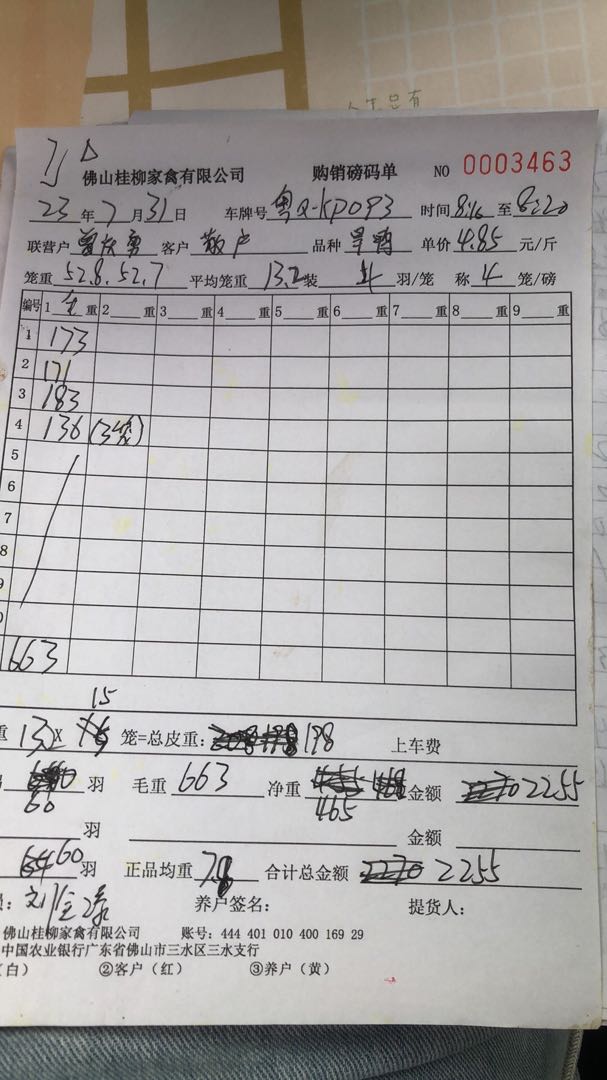 人生只有
佛山桂柳家禽有限公司 购销磅码单 NO 0003463
23 年 7 月 31 日 车牌号 粤Q-KP093 时间 8:16 至 8:20
联营户 客户 散户 品种 单价 4.85 元/斤
笼重 52.8, 52.7 平均笼重 13.2 装 4 羽/笼 称 4 笼/磅
编号 1 重 2 重 3 重 4 重 5 重 6 重 7 重 8 重 9 重
1 173
2 171
3 183
4 136 (3笼)
5
6
7
8
9
0
663
15
重 13.2 X 笼=总皮重: 198 上车费
羽 毛重 663 净重 金额 2255
60 465
羽 金额
60 羽 正品均重 合计总金额 2255
员: 养户签名: 提货人:
佛山桂柳家禽有限公司 账号: 444 401 010 400 169 29
中国农业银行广东省佛山市三水区三水支行
(白) ②客户(红) ③养户(黄)